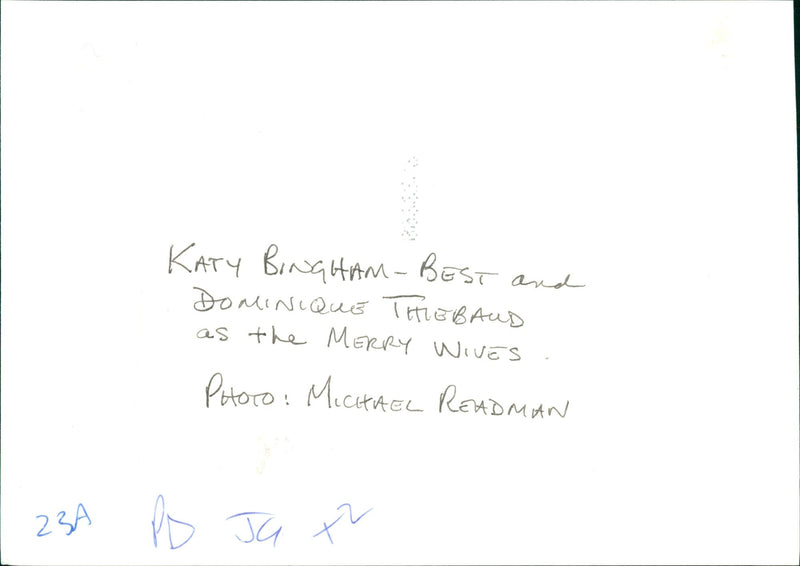 KATY BINGHAM-BEST and
DOMINIQUE THIEBAUD
as the MERRY WIVES.
PHOTO: MICHAEL READMAN
23A PD JG x2